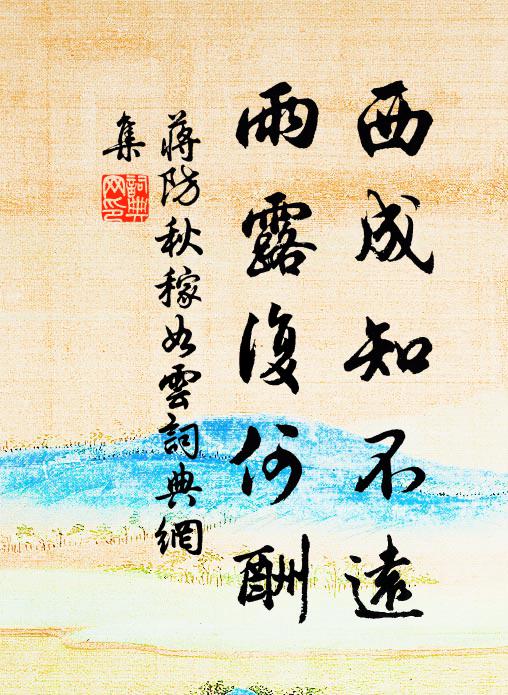 西成知不遠
雨露復何酬
蔣防秋稼如雲詞典網
集
詞典
网印